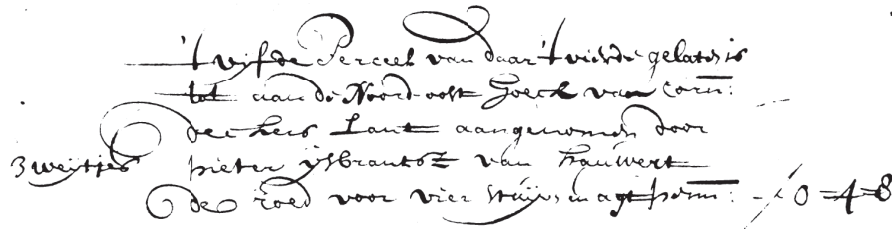 't vijfde Perceel van daar 't vierde gelaten is
tot aan de Noord-oost Hoeck van Corn:
deckers Lant aangenomen door
3 weytjes pieter ijsbrantsz van hauwert
de roed voor vier stuijv: en agt penn: - 0=4=8